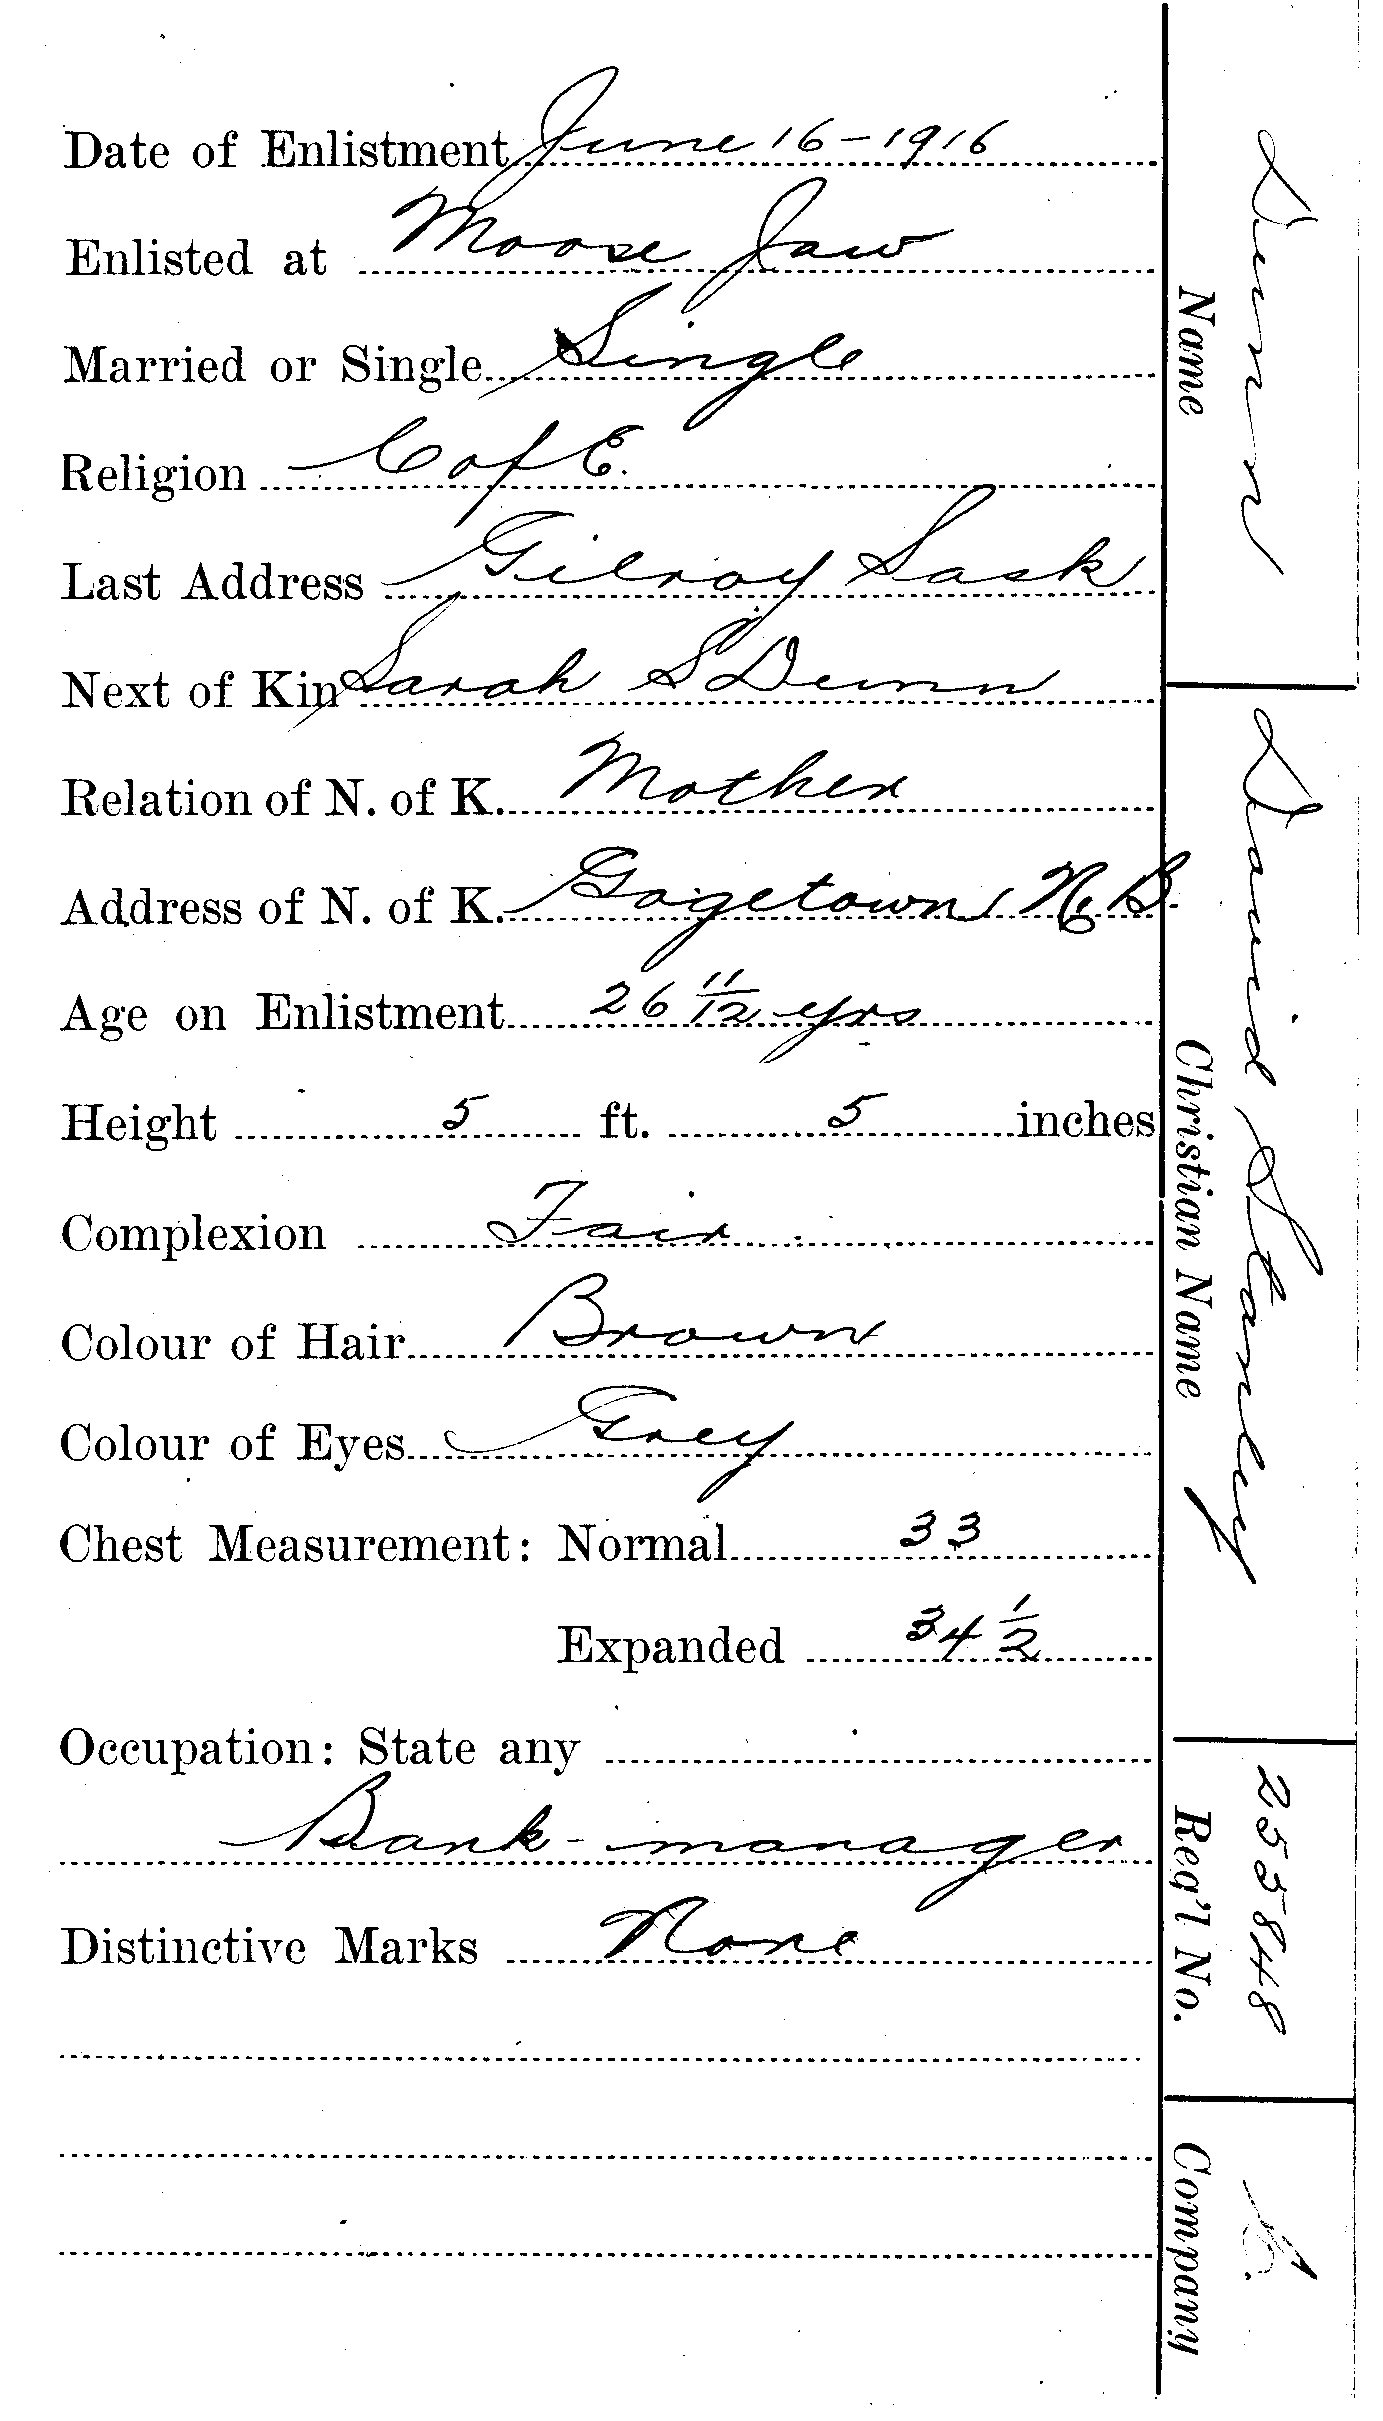 Date of Enlistment June 16-1916
Enlisted at Moose Jaw
Married or Single Single
Religion C of E.
Last Address Gilroy Sask
Next of Kin Sarah S Dunn
Relation of N. of K. Mother
Address of N. of K. Gagetown N.B.
Age on Enlistment 26 11/12 yrs
Height 5 ft. 5 inches
Complexion Fair
Colour of Hair Brown
Colour of Eyes Grey
Chest Measurement: Normal 33
Expanded 34 1/2
Occupation: State any
Bank-manager
Distinctive Marks None
Dunn
Name
David Stanley
Christian Name
255848
Reg'l No.
Company